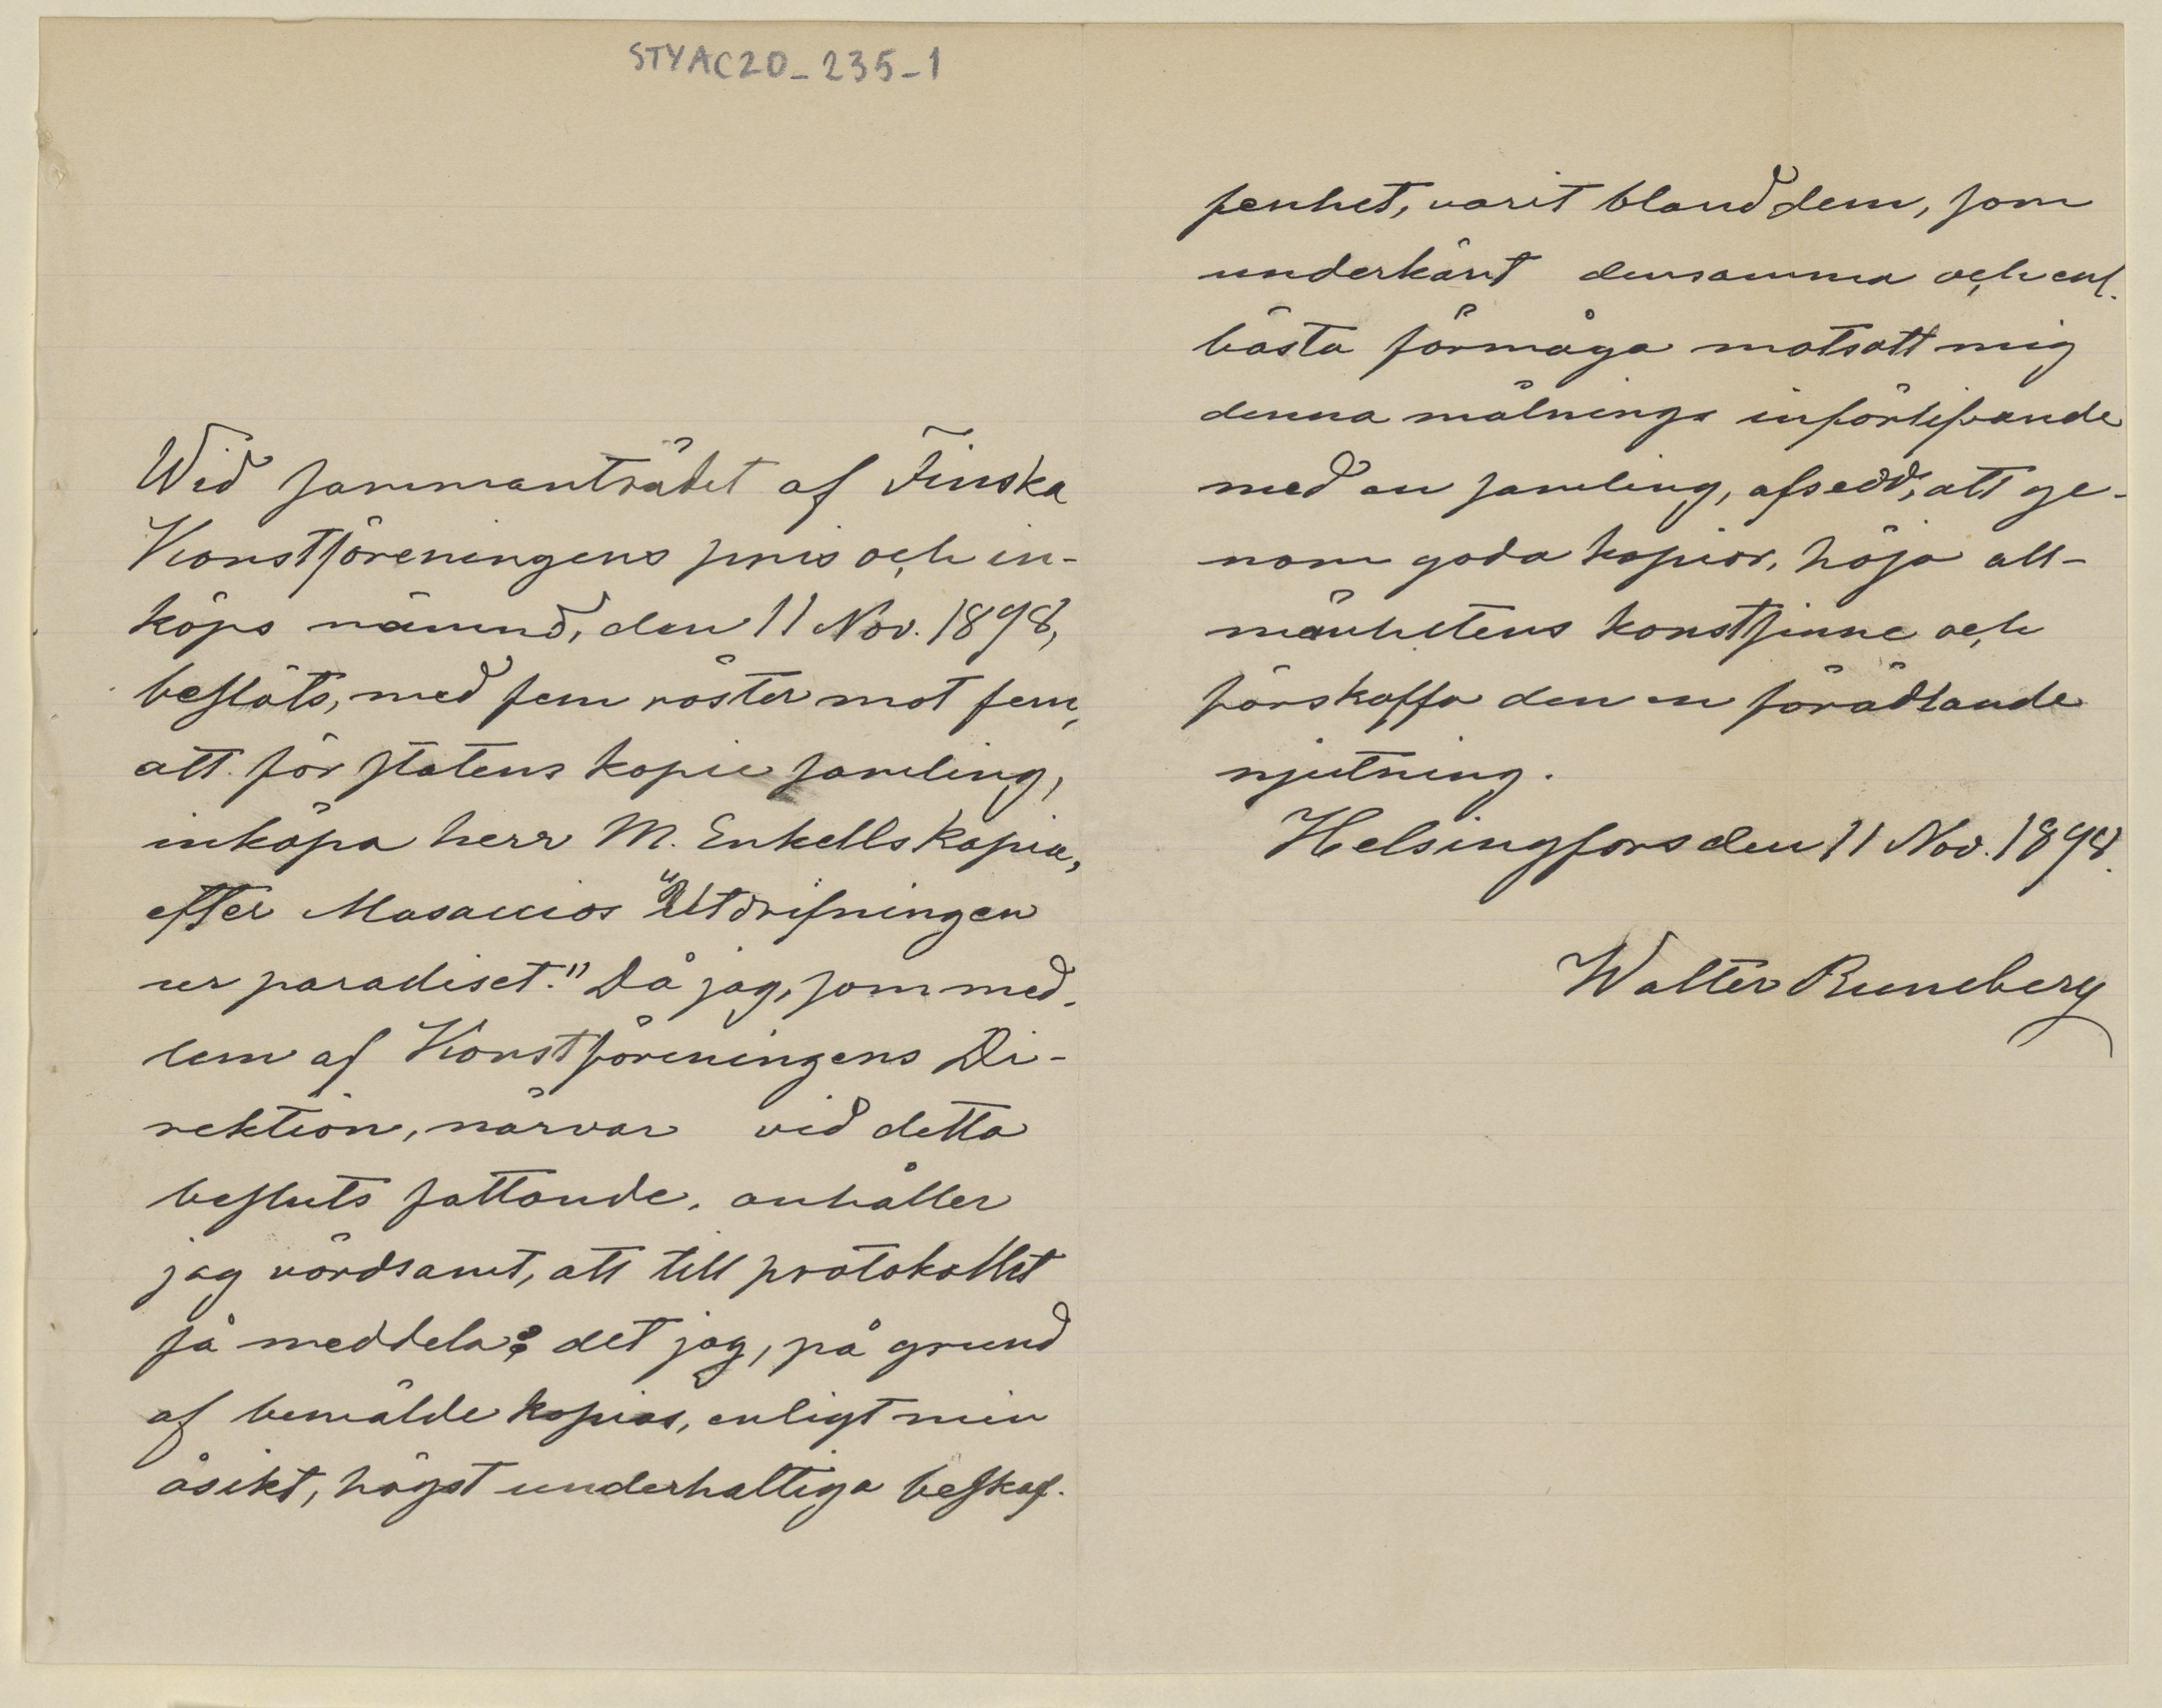 STYAC20_235_1
Wid sammanträdet af Finska
Konstföreningens pris och in-
köps nämnd, den 11 Nov. 1898,
beslöts, med fem röster mot fem,
att för statens kopie samling,
inköpa herr M. Enkells kopia,
efter Masaccios "Utdrifningen
ur paradiset." Då jag, som med-
lem af Konstföreningens Di-
rektion, närvar vid detta
besluts fattande, anhåller
jag vördsamt, att till protokollet
få meddela: det jag, på grund
af bemälde kopias, enligt min
åsikt, högst underhaltiga beskaf-
fenhet, varit bland dem, som
underkänt densamma och enl.
bästa förmåga motsatt mig
denna målnings införlifvande
med en samling, afsedd, att ge-
nom goda kopior, höja all-
mänhetens konstsinne och
förskaffa den en förädlande
njutning.
Helsingfors den 11 Nov. 1898.
Walter Runeberg